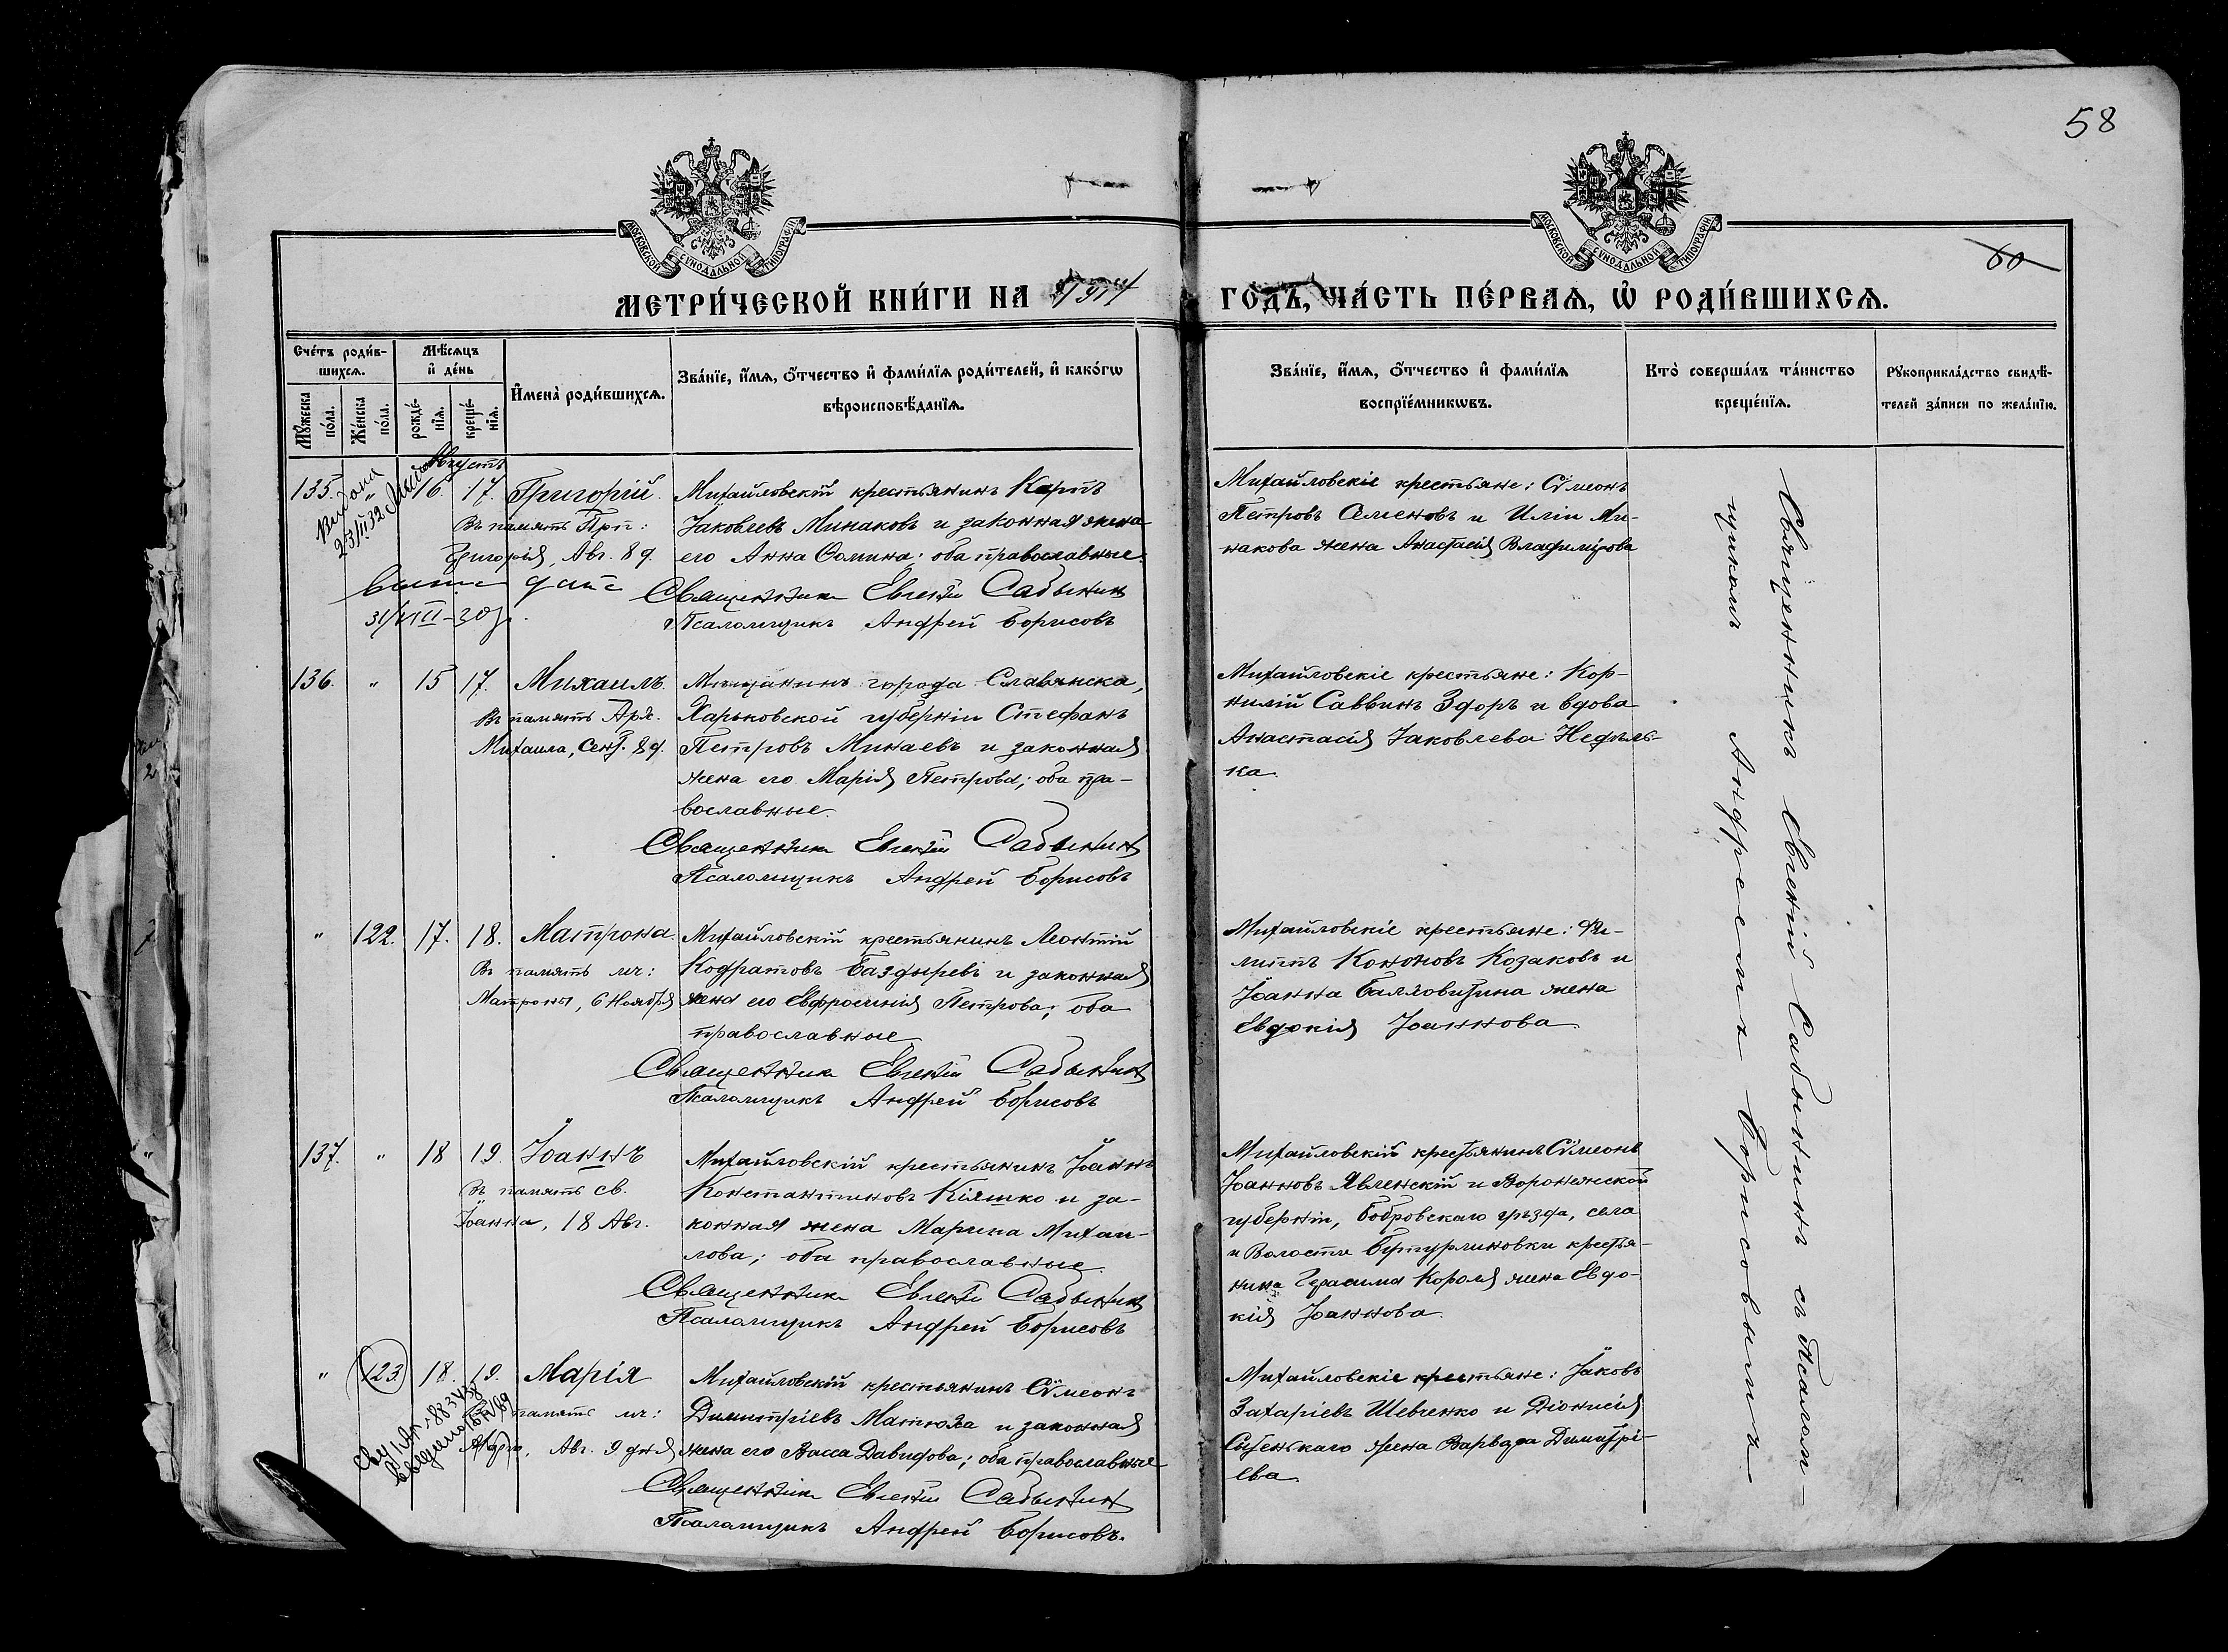 58
МОСКОВСКОЙ СѴНОДАЛЬНОЙ ТИПОГРАФІИ
МОСКОВСКОЙ СѴНОДАЛЬНОЙ ТИПОГРАФІИ
60
МЕТРИ́ЧЕСКОЙ КНИ́ГИ НА 1914
ГО́ДЪ, ЧА́СТЬ ПЕ́РВАѦ, Ѡ҆ РОДИ́ВШИХСѦ.
Сче́тъ роди́в-
шихсѧ.
Мꙋ́жеска по́ла.
Же́нска по́ла.
Мѣ́сѧцъ
и҆ де́нь
рожде́-
нїѧ.
креще́-
нїѧ.
И҆мена̀ роди́вшихсѧ.
Зва́нїе, и҆́мѧ, ѻ҆́тчество и҆ фами́лїѧ роди́телей, и҆ како́гѡ
вѣроисповѣ́данїѧ.
Зва́нїе, и҆́мѧ, ѻ҆́тчество и҆ фами́лїѧ
воспрїе́мникѡвъ.
Кто̀ соверша́лъ та́инство
креще́нїѧ.
Рꙋкоприкла́дство свидѣ́-
телей за́писи по жела́нїю.
Августъ
135. " 16. 17. Григорій.
Въ память Прп:
Григорія, Авг. 8 д.
Выдана
23/II 32
31/VIII-30 г.
Михайловскій крестьянинъ Карпъ
Іаковлевъ Минаковъ и законная жена
его Анна Ѳомина; оба православные.
Священникъ Евгеній Сабынин
Псаломщикъ Андрей Борисовъ
Михайловскіе крестьяне: Сѵмеонъ
Петровъ Семеновъ и Иліи Ми-
накова жена Анастасія Владимірова
136. " 15 17. Михаилъ.
Въ память Арх.
Михаила, Сент. 8 д.
Мѣщанинъ города Славянска,
Харьковской губерніи Стефанъ
Петровъ Минаевъ и законная
жена его Марія Петрова; оба пра-
вославные.
Священникъ Евгеній Сабынин
Псаломщикъ Андрей Борисовъ
Михайловскіе крестьяне: Кор-
нилій Саввинъ Здоръ и вдова
Анастасія Іаковлева Недѣль-
ка.
" 122. 17. 18. Матрона.
Въ память мч:
Матроны, 6 Ноября
Михайловскій крестьянинъ Леонтій
Кодратовъ Баздыревъ и законная
жена его Евфросинія Петрова; оба
православные
Священникъ Евгеній Сабынин
Псаломщикъ Андрей Борисовъ
Михайловскіе крестьяне: Фи-
липпъ Кононовъ Козаковъ и
Іоанна жена
Евдокія Іоаннова.
137. " 18 19. Іоаннъ
Въ память св.
Іоанна, 18 Авг.
Михайловскій крестьянинъ Іоаннъ
Константиновъ Кіяшко и за-
конная жена Марина Михаи-
лова; оба православные.
Священникъ Евгеній Сабынин
Псаломщикъ Андрей Борисовъ
Михайловскій крестьянинъ Сѵмеонъ
Іоанновъ Явленскій и Воронежской
губерніи, Бобровскаго уѣзда, села
и Волости Бутурлиновки крестья-
нина Герасима Короля жена Евдо-
кія Іоаннова.
" 123 18. 19. Марія
память мч:
Авг. 9 дня
Михайловскій крестьянинъ Сѵмеонъ
Димитріевъ и законная
жена его Васса Давидова; оба православные
Священникъ Евгеній Сабынин
Псаломщикъ Андрей Борисовъ.
Михайловскіе крестьяне: Іаковъ
Захаріевъ Шевченко и Діонисія
жена Варвара Димитрі-
ева.
Священникъ Евгеній Сабынинъ съ Псалом-
щикомъ Андреемъ Борисовымъ